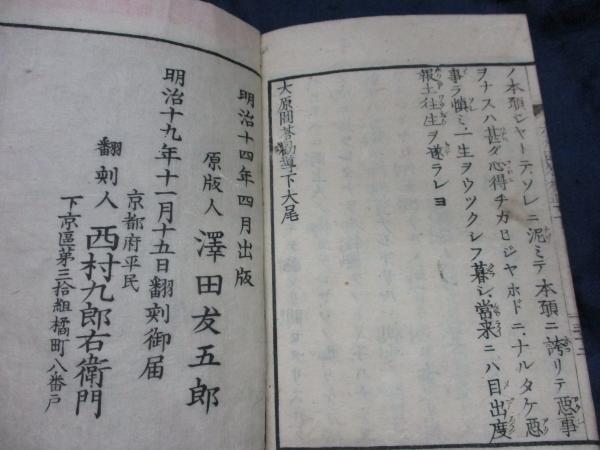 ノ本願ジヤトテ、ソレニ泥ミテ本願ニ誇リテ悪事
ヲナスハ甚ダ心得チカヒジヤホドニ、ナルタケ悪
事ヲ慎ミ、一生ヲウツクシフ暮シ、當来ニハ目出度
報土往生ヲ遂ラレヨ
大原問荅勸導下大尾
明治十四年四月出版
原版人 澤田友五郎
明治十九年十一月十五日翻刻御届
京都府平民
翻刻人 西村九郎右衛門
下京區第三拾組橘町八番戸